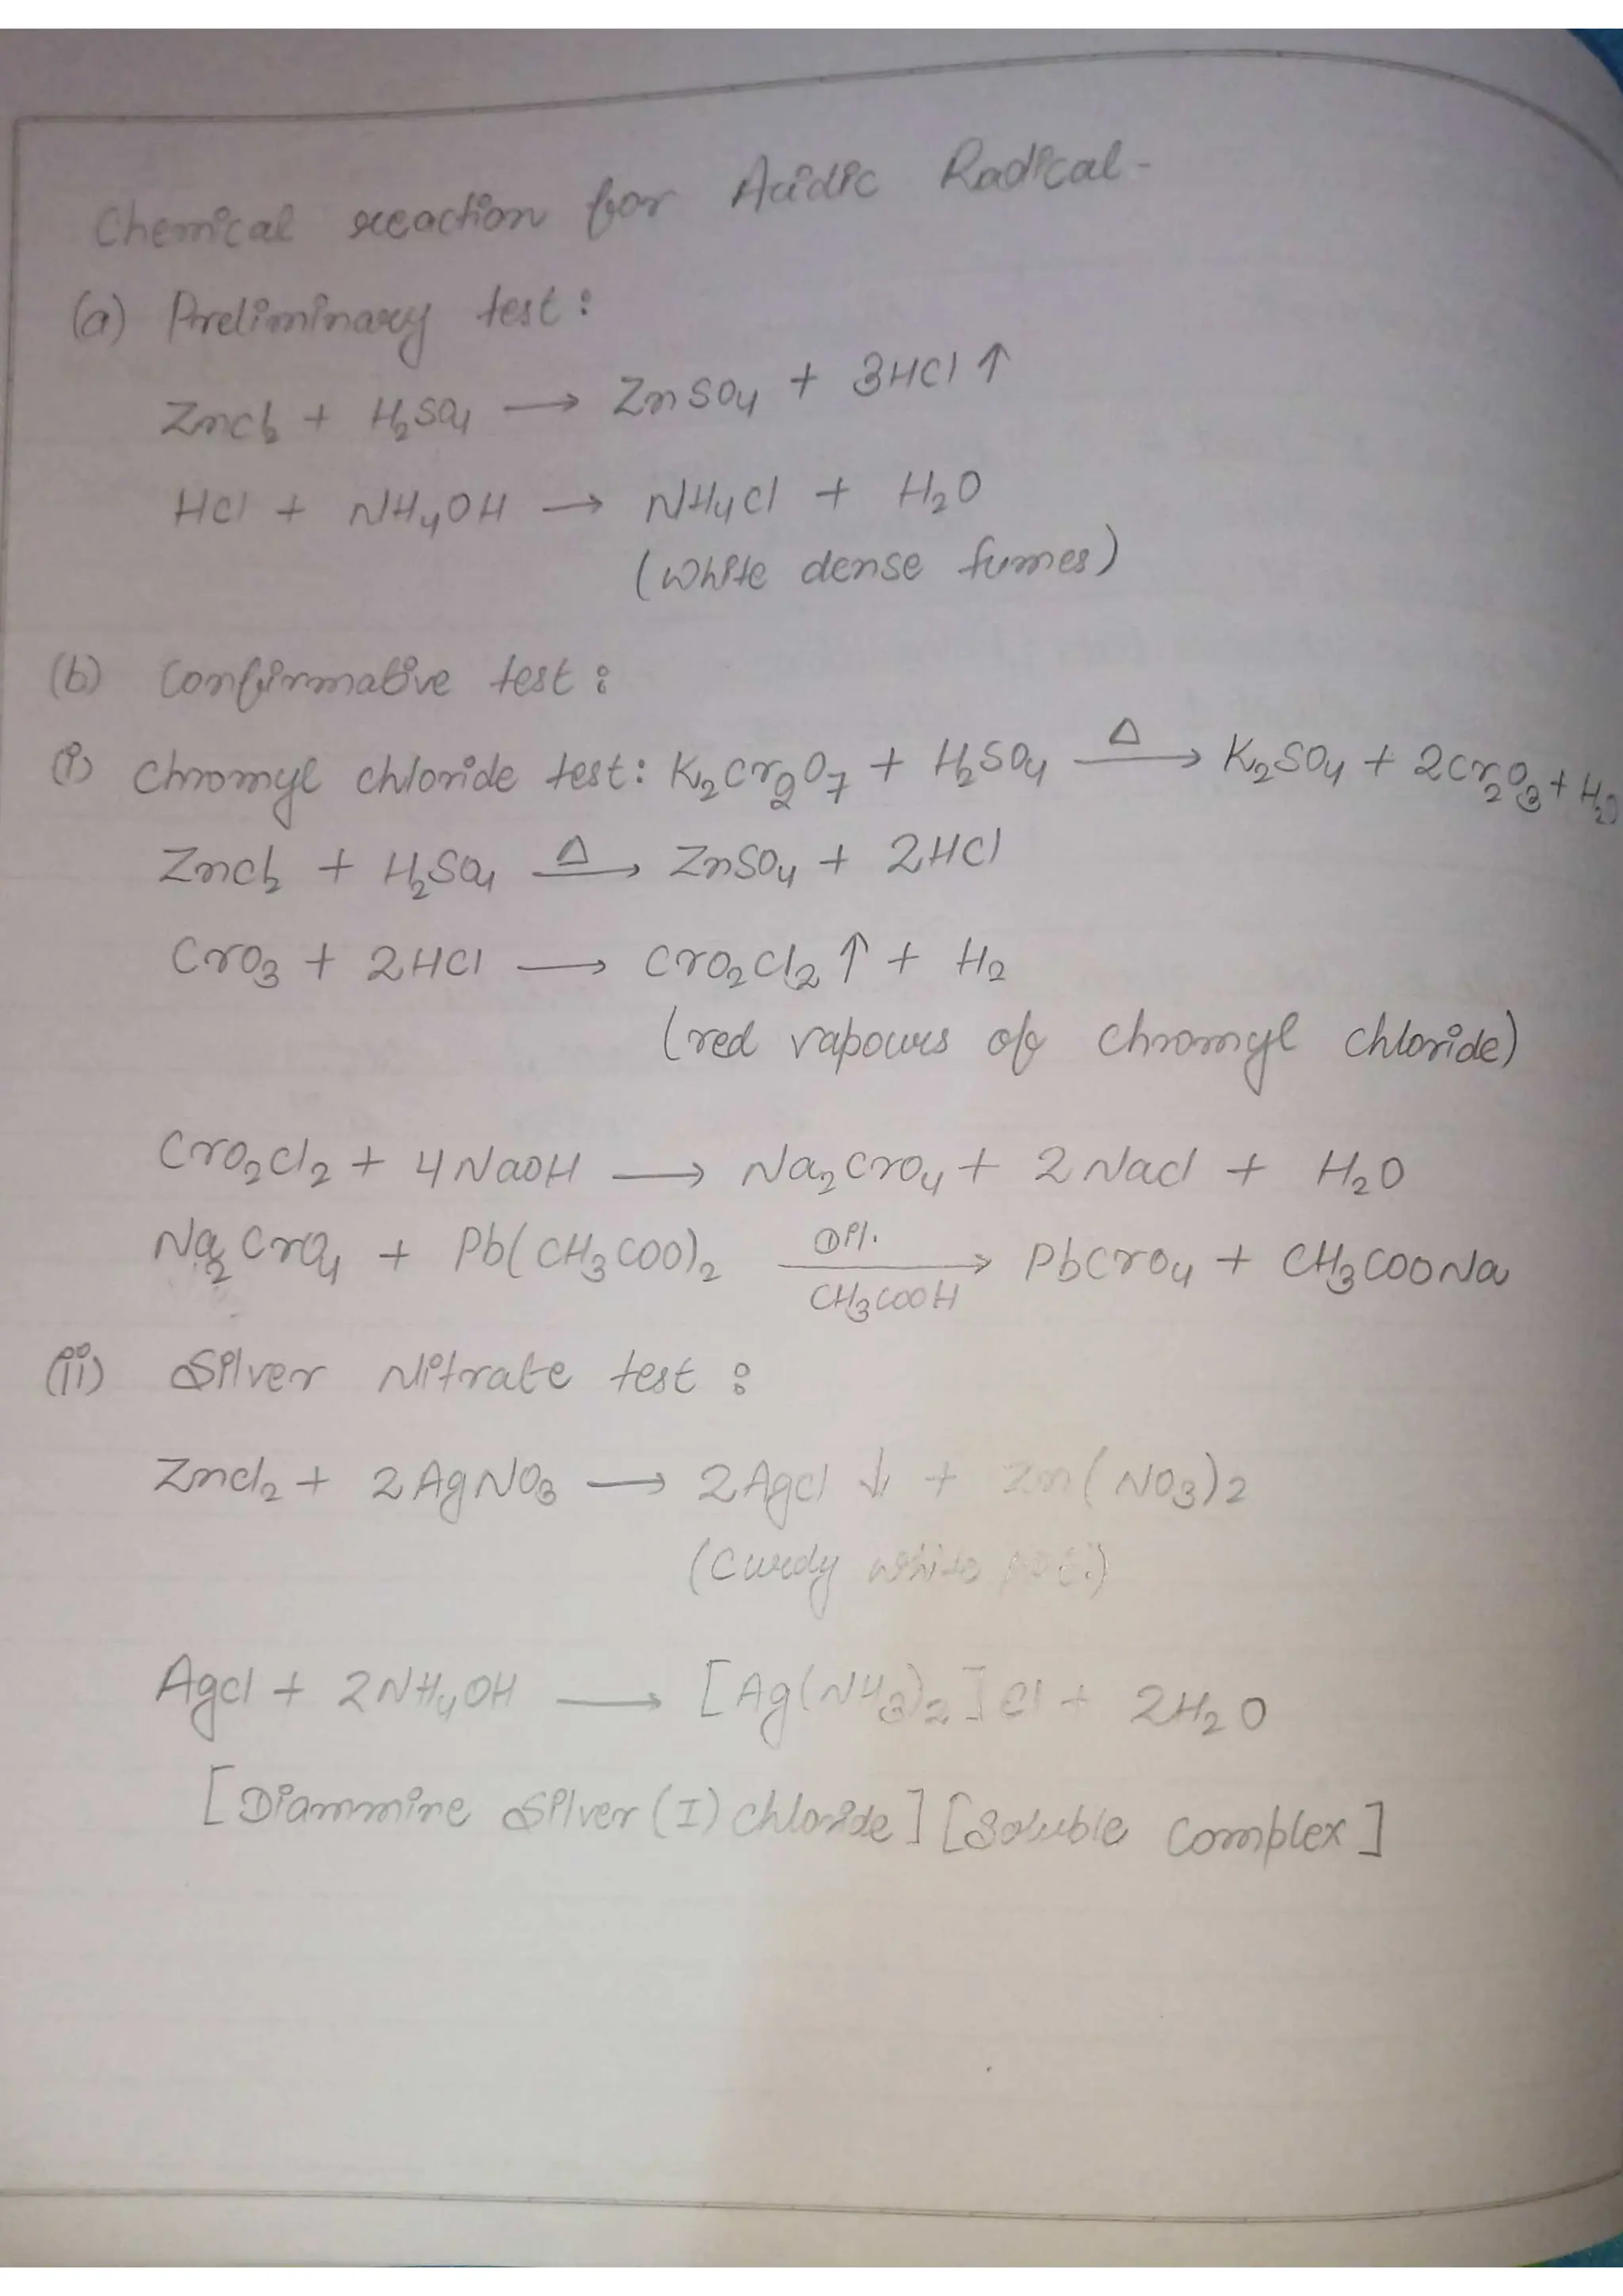 Chemical reaction for Acidic Radical-
(a) Preliminary test:
ZnCl₂ + H₂SO₄ → ZnSO₄ + 3HCl ↑
HCl + NH₄OH → NH₄Cl + H₂O
(white dense fumes)
(b) Confirmative test:
(i) Chromyl chloride test: K₂Cr₂O₇ + H₂SO₄ —Δ→ K₂SO₄ + 2Cr₂O₃ + H₂O
ZnCl₂ + H₂SO₄ —Δ→ ZnSO₄ + 2HCl
CrO₃ + 2HCl → CrO₂Cl₂ ↑ + H₂
(red vapours of chromyl chloride)
CrO₂Cl₂ + 4NaOH → Na₂CrO₄ + 2NaCl + H₂O
Na₂CrO₄ + Pb(CH₃COO)₂ —Dil. CH₃COOH→ PbCrO₄ + CH₃COONa
(ii) Silver Nitrate test:
ZnCl₂ + 2AgNO₃ → 2AgCl ↓ + Zn(NO₃)₂
(Curdy white ppt.)
AgCl + 2NH₄OH → [Ag(NH₃)₂]Cl + 2H₂O
[Diammine Silver(I) chloride] [Soluble Complex]